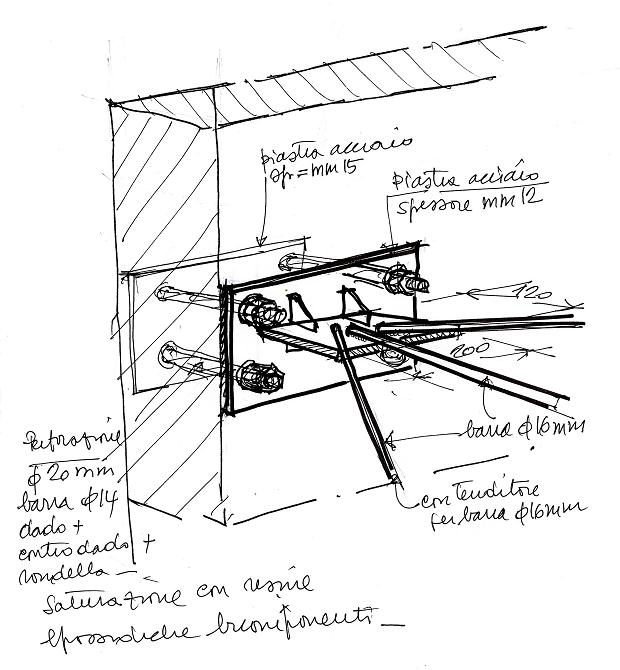 piastra acciaio
sp=mm15
piastra acciaio
spessore mm12
120
200
barra ϕ16mm
con tenditore
per barra ϕ16mm
Perforazione
ϕ20mm
barra ϕ14
dado +
controdado +
rondella –
Saturazione con resine
epossidiche bicomponenti –